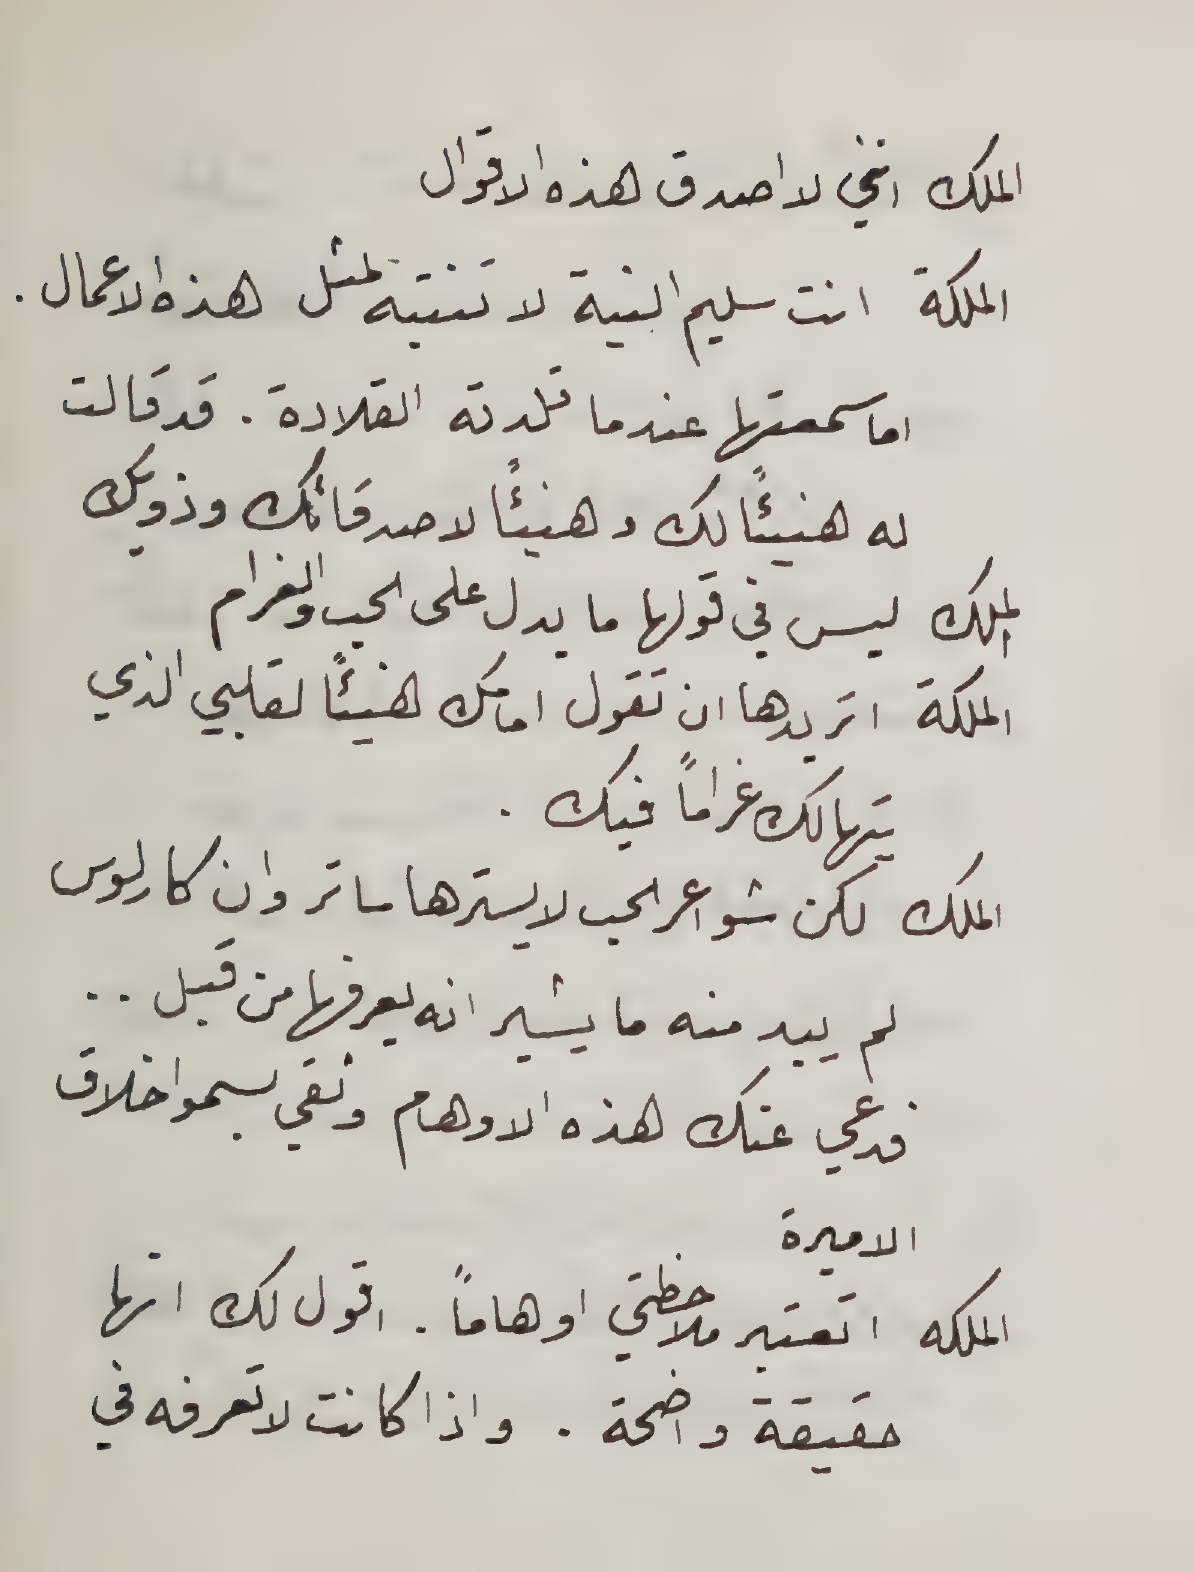 الملك انني لا اصدق هذه الاقوال
الملكة انت سليم النية لا تنتبه لمثل هذه الاعمال .
اما سمعتها عندما قلدته القلادة . قد قالت
له هنيئًا لك وهنيئًا لاصدقائك وذويك
الملك ليس في قولها ما يدل على الحب والغرام
الملكة اتريدها ان تقول امامك هنيئًا لقلبي الذي
يتهالك غرامًا فيك .
الملك لكن شواعر الحب لا يسترها ساتر وان كارلوس
لم يبد منه ما يشير انه يعرفها من قبل ..
فدعي عنك هذه الاوهام وثقي بسمو اخلاق
الاميرة
الملكه اتعتبر ملاحظتي اوهامًا . اقول لك انها
حقيقة واضحة . واذا كانت لا تعرفه في